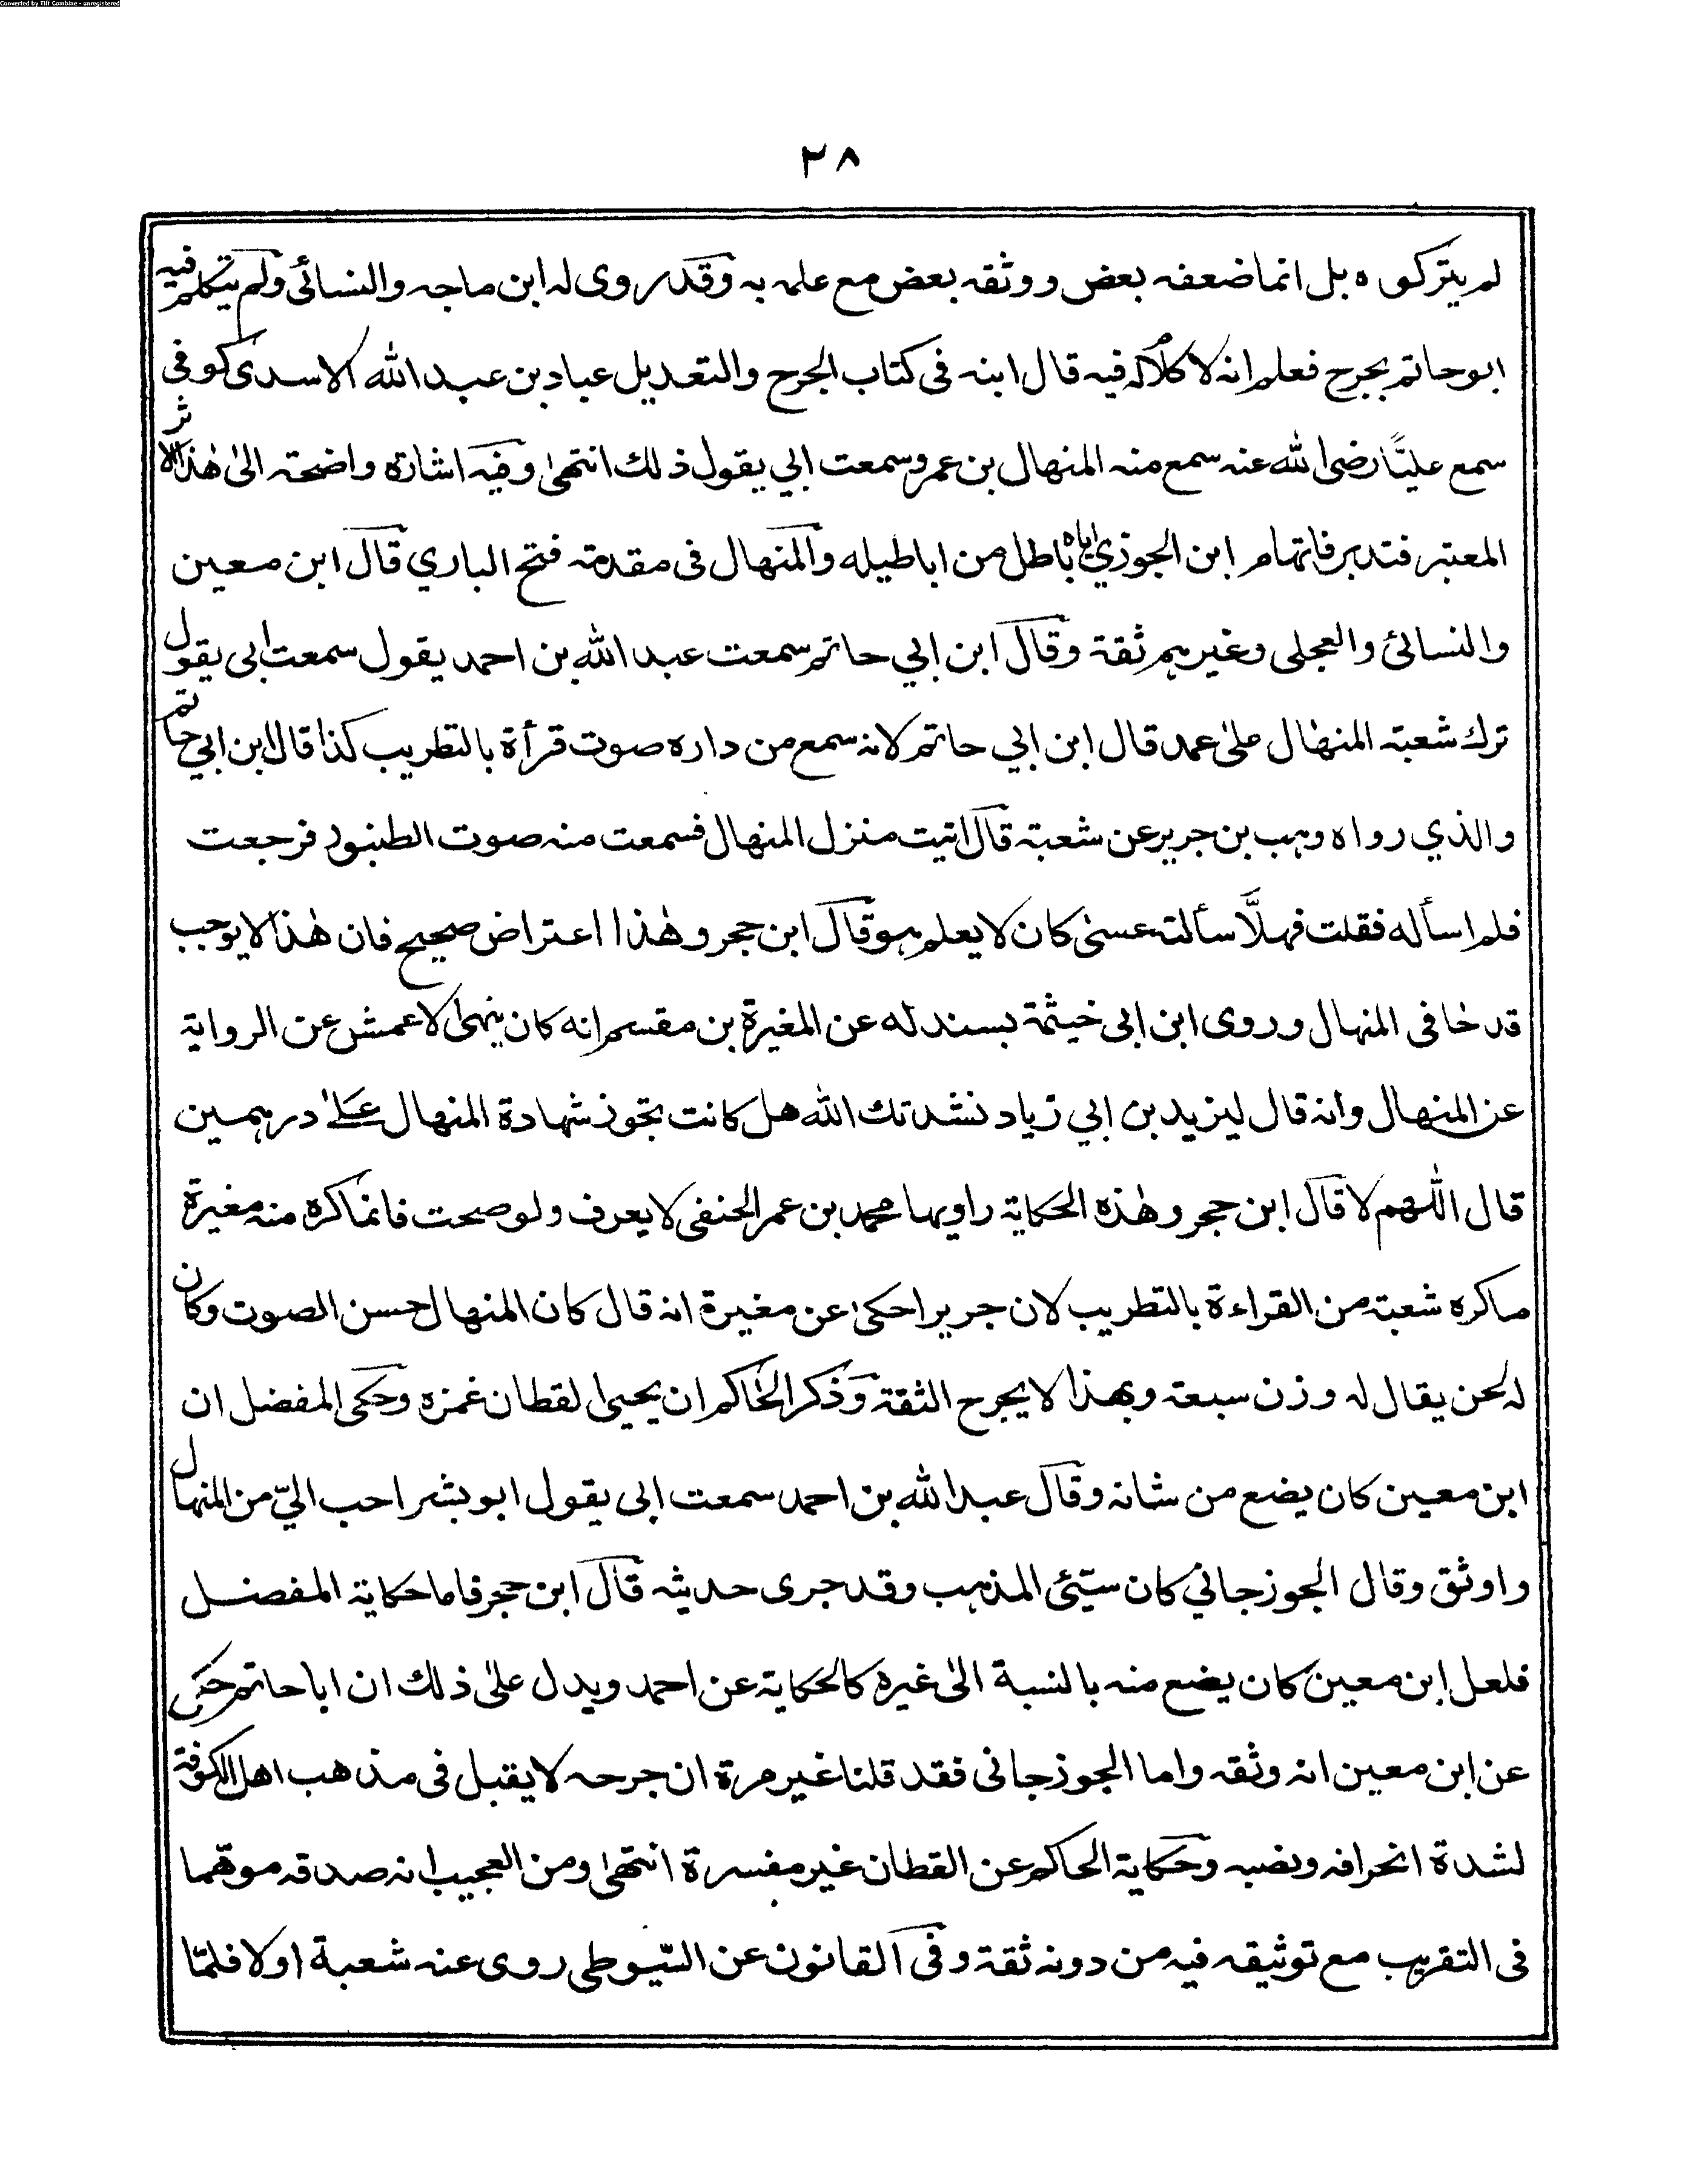 Converted by Tiff Combine - unregistered
٢٨
لم يتركوه بل انما ضعفه بعض ووثقه بعض مع علمه به وقد روى له ابن ماجه والنسائى ولم يتكلم فيه
ابو حاتم بجرح فعلم انه لا كلام له فيه قال ابنه فى كتاب الجرح والتعديل عباد بن عبد الله الاسدى كوفى
سمع عليًّا رضى الله عنه سمع منه المنهال بن عمرو سمعت ابي يقول ذلك انتهىٰ وفيه اشارة واضحة الىٰ هٰذا الاثر
المعتبر فتدبر فاتهام ابن الجوزي اياه باطل من اباطيله والمنهال فى مقدمة فتح الباري قال ابن معين
والنسائى والعجلى وغيرہم ثقة وقال ابن ابي حاتم سمعت عبد الله بن احمد يقول سمعت ابى يقول
ترك شعبة المنهال علىٰ عمد قال ابن ابي حاتم لانه سمع من داره صوت قرأة بالتطريب كذا قال ابن ابي حاتم
والذي رواه وہب بن جرير عن شعبة قال اتيت منزل المنهال فسمعت منه صوت الطنبور فرجعت
فلم اسأله فقلت فهلَّا سألته عسىٰ كان لا يعلم ہو قال ابن حجر وهٰذا اعتراض صحيح فان هٰذا لا يوجب
قدحا فى المنهال وروى ابن ابى خيثمة بسند له عن المغيرة بن مقسم انه كان ينهىٰ الاعمش عن الرواية
عن المنهال وانه قال ليزيد بن ابي زياد نشدتك الله هل كانت تجوز شهادة المنهال علىٰ درہمين
قال اللهم لا قال ابن حجر وهٰذه الحكاية راويها محمد بن عمر الحنفى لا يعرف ولو صحت فانما كره منه مغيرة
ما كره شعبة من القراءة بالتطريب لان جريرا حكىٰ عن مغيرة انه قال كان المنهال حسن الصوت وكان
له لحن يقال له وزن سبعة وبهذا لا يجرح الثقة وذكر الحاكم ان يحيىٰ القطان غمزه وحكى المفضل ان
ابن معين كان يضع من شانه وقال عبد الله بن احمد سمعت ابى يقول ابو بشر احب اليّ من المنهال
واوثق وقال الجوزجاني كان سيّئى المذہب وقد جرى حديثه قال ابن حجر فاما حكاية المفضل
فلعل ابن معين كان يضع منه بالنسبة الىٰ غيره كالحكاية عن احمد ويدل علىٰ ذلك ان ابا حاتم حكى
عن ابن معين انه وثقه واما الجوزجانى فقد قلنا غير مرة ان جرحه لا يقبل فى مذهب اهل الكوفة
لشدة انحرافه ونصبه وحكاية الحاكم عن القطان غير مفسرة انتهىٰ ومن العجيب انه صدقه موهّما
فى التقريب مع توثيقه فيه من دونه ثقة وفى القانون عن السّيوطى روى عنه شعبة اولا فلمّا